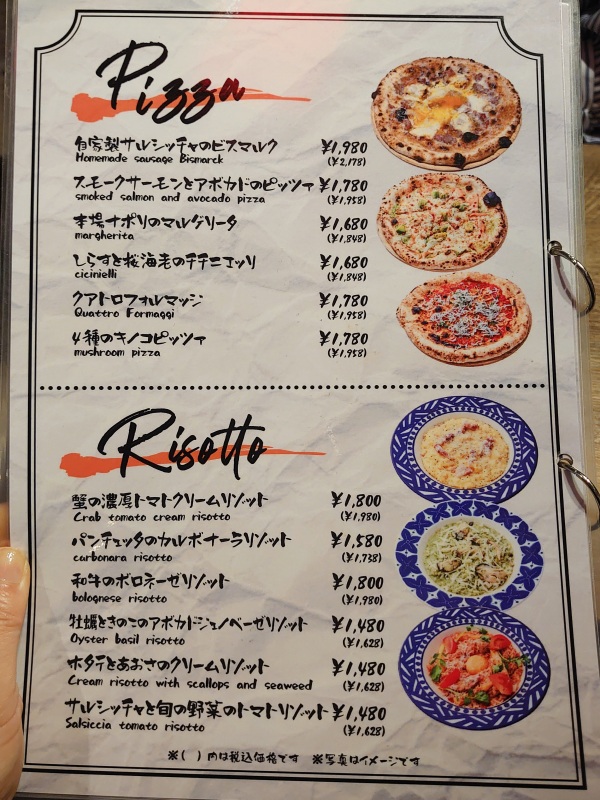 Pizza
自家製サルシッチャのビスマルク ¥1,980
Homemade sausage Bismarck (¥2,178)
スモークサーモンとアボカドのピッツァ ¥1,780
smoked salmon and avocado pizza (¥1,958)
本場ナポリのマルゲリータ ¥1,680
margherita (¥1,848)
しらすと桜海老のチチニエッリ ¥1,680
cicinielli (¥1,848)
クアトロフォルマッジ ¥1,780
Quattro Formaggi (¥1,958)
4種のキノコピッツァ ¥1,780
mushroom pizza (¥1,958)
Risotto
蟹の濃厚トマトクリームリゾット ¥1,800
Crab tomato cream risotto (¥1,980)
パンチェッタのカルボナーラリゾット ¥1,580
carbonara risotto (¥1,738)
和牛のボロネーゼリゾット ¥1,800
bolognese risotto (¥1,980)
牡蠣ときのこのアボカドジェノベーゼリゾット ¥1,480
Oyster basil risotto (¥1,628)
ホタテとあおさのクリームリゾット ¥1,480
Cream risotto with scallops and seaweed (¥1,628)
サルシッチャと旬の野菜のトマトリゾット ¥1,480
Salsiccia tomato risotto (¥1,628)
※( )内は税込価格です ※写真はイメージです